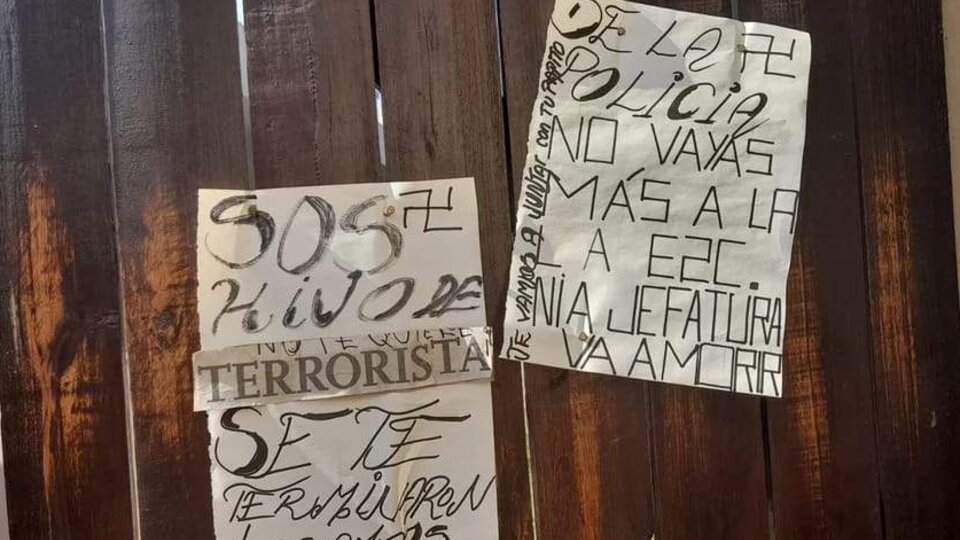 SOS
HIJO DE
NO TE QUIERE
TERRORISTA
SE TE
TERMINARON
DE LA
POLICIA
NO VAYAS
MÁS A LA
E2C.
NI A JEFATURA
VA A MORIR
TE VAMOS A JUNTAR CON TU PAPITO